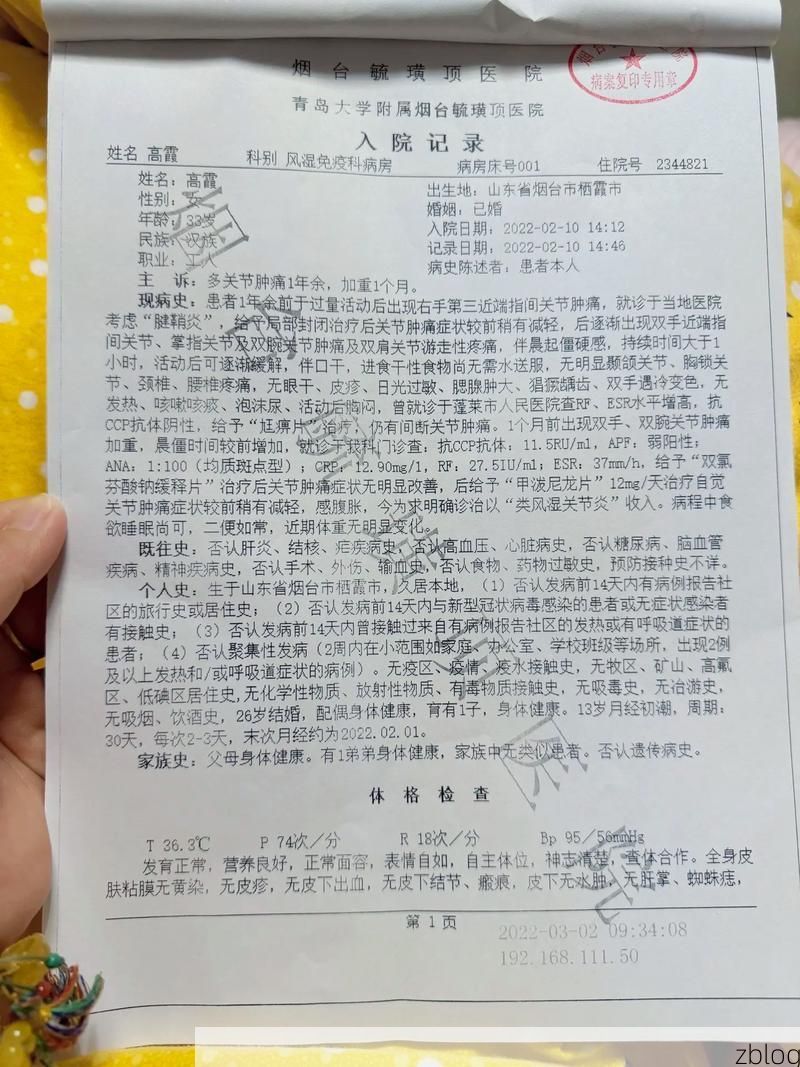 烟台毓璜顶医院
病案复印专用章
青岛大学附属烟台毓璜顶医院
入院记录
姓名 高霞 科别 风湿免疫科病房 病房床号001 住院号 2344821
姓名：高霞 出生地：山东省烟台市栖霞市
性别：女 婚姻：已婚
年龄：33岁 入院日期：2022-02-10 14:12
民族：汉族 记录日期：2022-02-10 14:46
职业：工人 病史陈述者：患者本人
主 诉：多关节肿痛1年余，加重1个月。
现病史：患者1年余前于过量活动后出现右手第三近端指间关节肿痛，就诊于当地医院
考虑“腱鞘炎”，给予局部封闭治疗后关节肿痛症状较前稍有减轻，后逐渐出现双手近端指
间关节、掌指关节及双腕关节肿痛及双肩关节游走性疼痛，伴晨起僵硬感，持续时间大于1
小时，活动后可逐渐缓解，伴口干，进食干性食物尚无需水送服，无明显颞颌关节、胸锁关
节、颈椎、腰椎疼痛，无眼干、皮疹、日光过敏、腮腺肿大、猖獗龋齿、双手遇冷变色，无
发热、咳嗽咳痰、泡沫尿、活动后胸闷，曾就诊于蓬莱市人民医院查RF、ESR水平增高，抗
CCP抗体阴性，给予“尪痹片”治疗，仍有间断关节肿痛。1个月前出现双手、双腕关节肿痛
加重，晨僵时间较前增加，就诊于我科门诊查：抗CCP抗体：11.5RU/ml，APF：弱阳性；
ANA：1:100（均质斑点型）；CRP：12.90mg/l，RF：27.5IU/ml；ESR：37mm/h，给予“双氯
芬酸钠缓释片”治疗后关节肿痛症状无明显改善，后给予“甲泼尼龙片”12mg/天治疗自觉
关节肿痛症状较前稍有减轻，感腹胀，今为求明确诊治以“类风湿关节炎”收入。病程中食
欲睡眠尚可，二便如常，近期体重无明显变化。
既往史：否认肝炎、结核、疟疾病史，否认高血压、心脏病史，否认糖尿病、脑血管
疾病、精神疾病史，否认手术、外伤、输血史，否认食物、药物过敏史，预防接种史不详。
个人史：生于山东省烟台市栖霞市，久居本地，（1）否认发病前14天内有病例报告社
区的旅行史或居住史；（2）否认发病前14天内与新型冠状病毒感染的患者或无症状感染者
有接触史；（3）否认发病前14天内曾接触过来自有病例报告社区的发热或有呼吸道症状的
患者；（4）否认聚集性发病（2周内在小范围如家庭、办公室、学校班级等场所，出现2例
及以上发热和/或呼吸道症状的病例）。无疫区、疫情、疫水接触史，无牧区、矿山、高氟
区、低碘区居住史，无化学性物质、放射性物质、有毒物质接触史，无吸毒史，无冶游史，
无吸烟、饮酒史，26岁结婚，配偶身体健康，育有1子，身体健康。13岁月经初潮，周期：
30天，每次2-3天，末次月经约为2022.02.01。
家族史：父母身体健康。有1弟弟身体健康，家族中无类似患者。否认遗传病史。
体格检查
T 36.3℃ P 74次/分 R 18次/分 Bp 95/56mmHg
发育正常，营养良好，正常面容，表情自如，自主体位，神志清楚，查体合作。全身皮
肤粘膜无黄染，无皮疹，无皮下出血，无皮下结节、瘢痕，皮下无水肿，无肝掌、蜘蛛痣，
第 1 页
2022-03-02 09:34:08
192.168.111.50
zblog